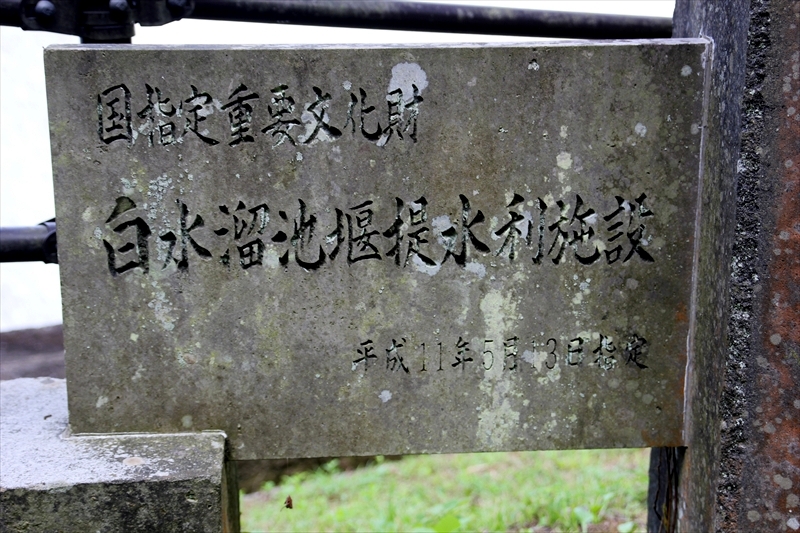 国指定重要文化財
白水溜池堰提水利施設
平成11年5月13日指定